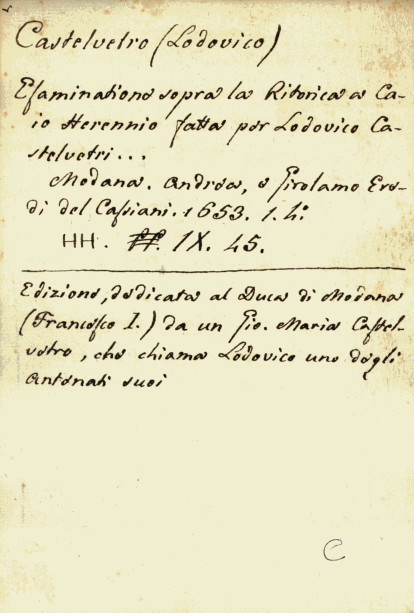 Castelvetro (Lodovico)
Esaminatione sopra la Ritorica a Ca-
io Herennio fatta per Lodovico Ca-
stelvetri...
Modena. Andrea, e Girolamo Ere-
di del Cassiani. 1653. 1. 4.º
HH. IX. 45.
Edizione, dedicata al Duca di Modena
(Francesco I.) da un Gio. Maria Castel-
vetro, che chiama Lodovico uno degli
antenati suoi
C